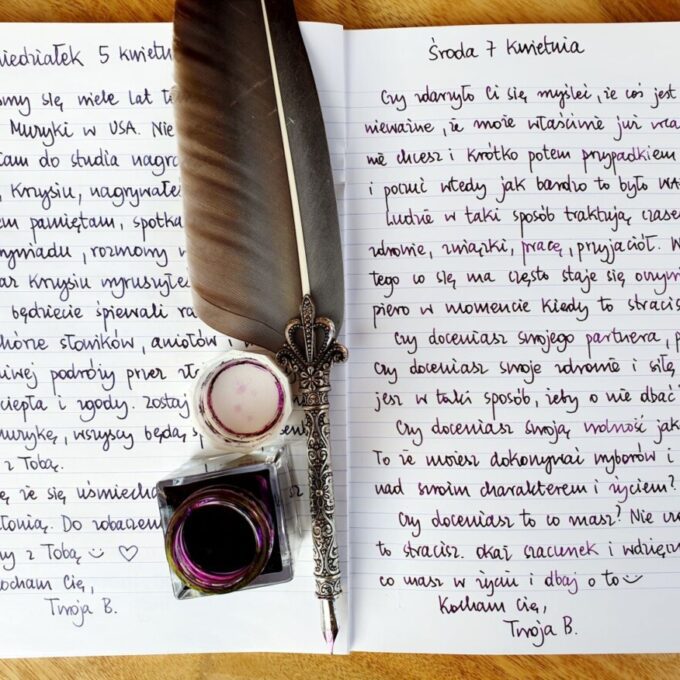 iedziałek 5 kwietn
śmy się wiele lat te
Muzyki w USA. Nie
łam do studia nagra
, Krzysiu, nagrywałe
em pamiętam, spotka
wywiadu, rozmowy w
az Krzysiu wyruszyłe
będziecie śpiewali ra
chórze słowików, aniołów i
liwej podróży przez
ciepła i zgody. Zostaj
muzykę, wszyscy będą
z Tobą.
ę, że się uśmiecha
łonią. Do zobaczen
ny z Tobą ◡̈ ♡
Kocham Cię,
Twoja B.
Środa 7 kwietnia
Czy zdarzyło Ci się myśleć, że coś jest
nieważne, że może właściwie już
nie chcesz i krótko potem przypadkiem
i poczuć wtedy jak bardzo to było WA
Ludzie w taki sposób traktują czase
zdrowie, związki, pracę, przyjaciół. W
tego co się ma często staje się oczywi
piero w momencie kiedy to stracis
Czy doceniasz swojego partnera, p
Czy doceniasz swoje zdrowie i siłę
jesz w taki sposób, żeby o nie dbać?
Czy doceniasz swoją wolność jak
To że możesz dokonywać wyborów i
nad swoim charakterem i życiem?
Czy doceniasz to co masz? Nie cz
to stracisz. Okaż szacunek i wdzięcz
co masz w życiu i dbaj o to ◡̈
Kocham Cię,
Twoja B.